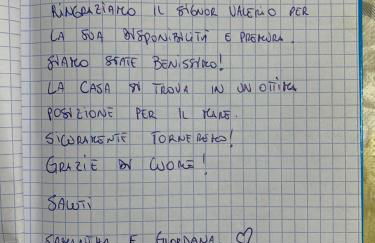 RINGRAZIAMO IL SIGNOR VALERIO PER
LA SUA DISPONIBILITÀ E PREMURA.
SIAMO STATE BENISSIMO!
LA CASA SI TROVA IN UN OTTIMA
POSIZIONE PER IL MARE.
SICURAMENTE TORNEREMO!
GRAZIE DI CUORE!
SALUTI
SAMANTHA E GIORDANA ♡